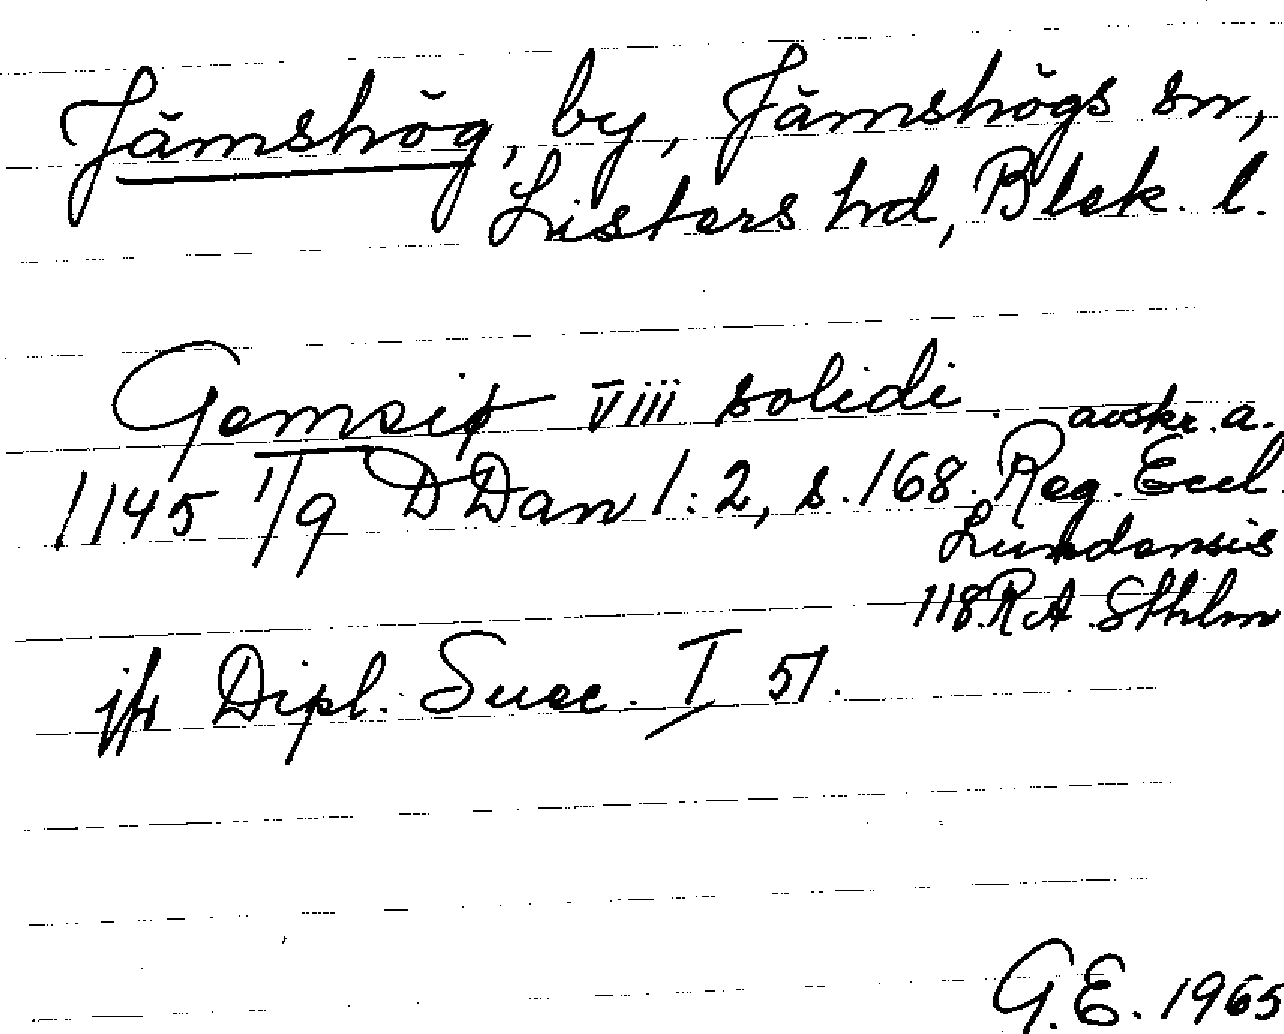 Jämshög, by, Jämshögs sn,
Listers hd, Blek. l.
Gemsiø viii solidi. avskr. a.
1145 1/9 DDan 1:2, s. 168. Reg. Eccl.
Lundensis
118. RA Sthlm
jfr Dipl. Suec. I 51.
G.E. 1965